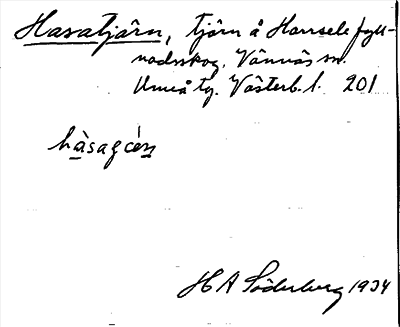 Hasatjärn, tjärn å Harrsele fyll-
nadsskog, Vännäs sn.
Umeå tg. Västerb. l. 201
hàsaꞔǽṇ
H A Söderberg 1934